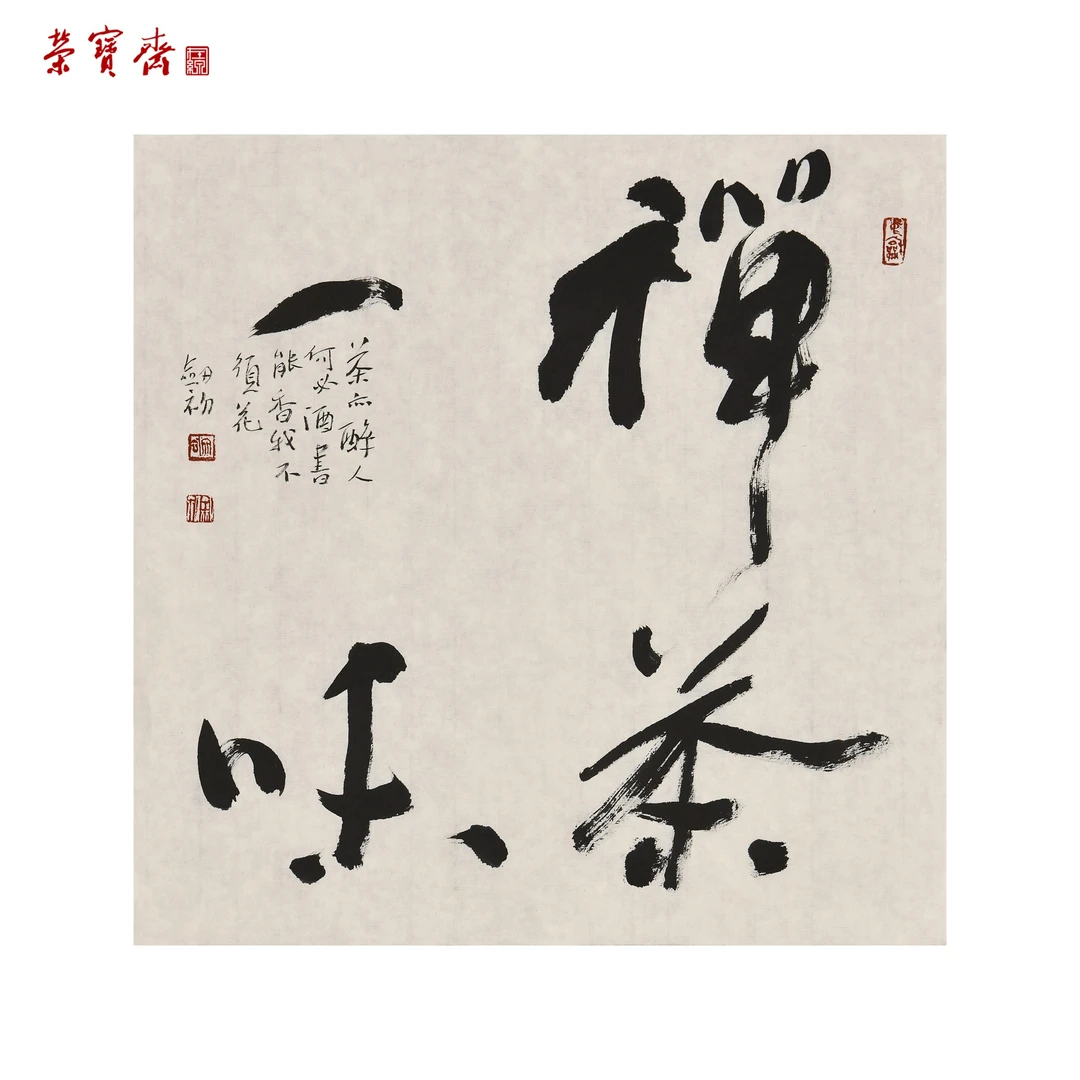 榮寶齋
禪茶
一味
茶亦醉人
何必酒書
能香我不
須花
劔初